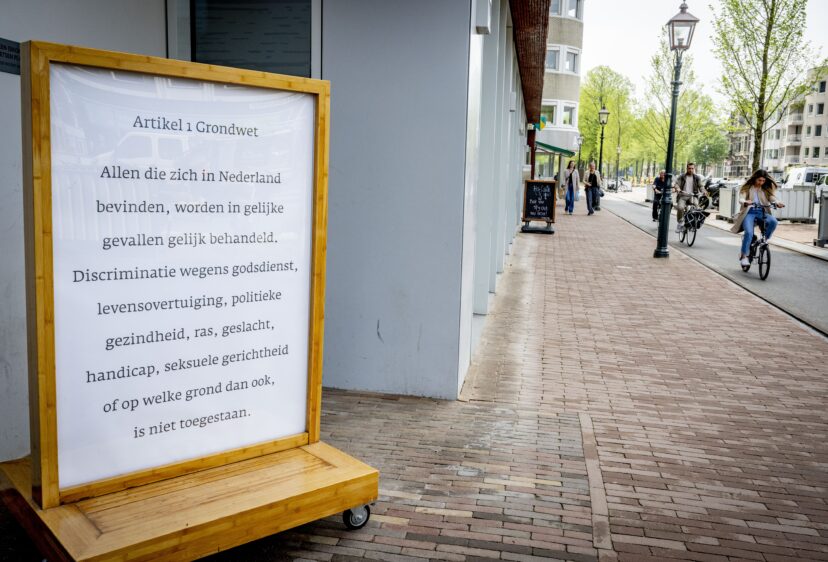 Artikel 1 Grondwet
Allen die zich in Nederland
bevinden, worden in gelijke
gevallen gelijk behandeld.
Discriminatie wegens godsdienst,
levensovertuiging, politieke
gezindheid, ras, geslacht,
handicap, seksuele gerichtheid
of op welke grond dan ook,
is niet toegestaan.